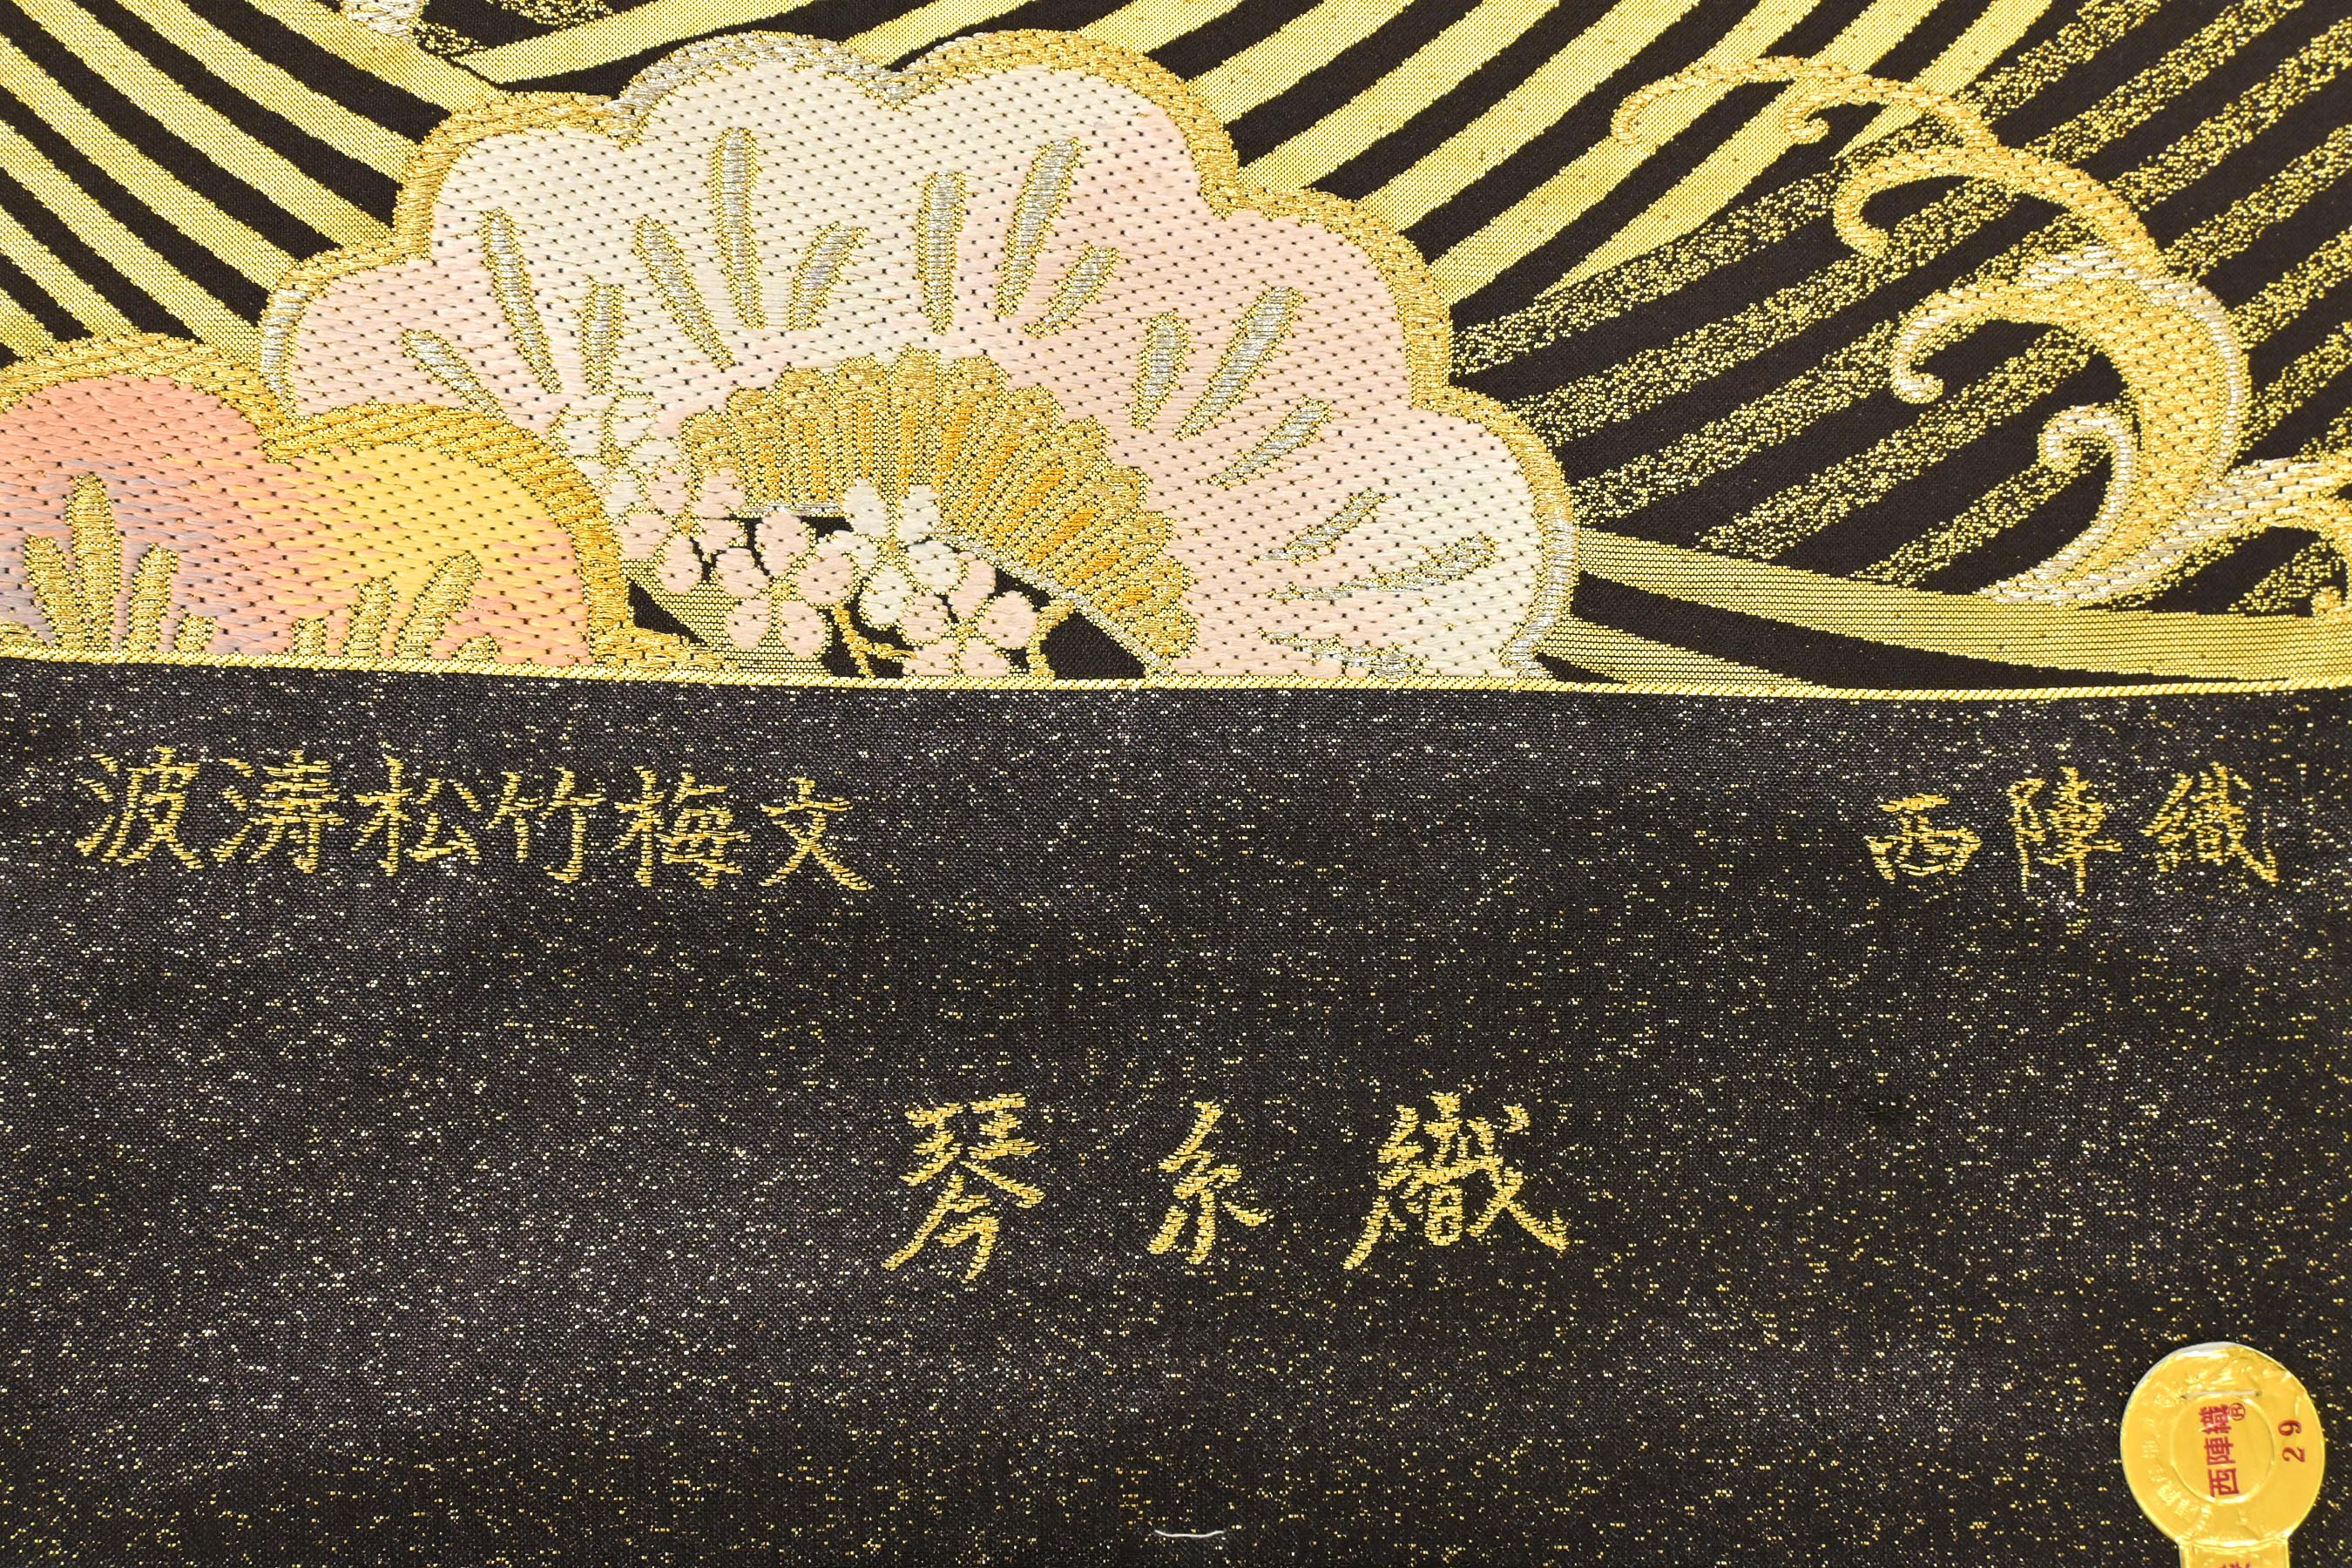 波涛松竹梅文
西陣織
琴糸織
西陣織®
29